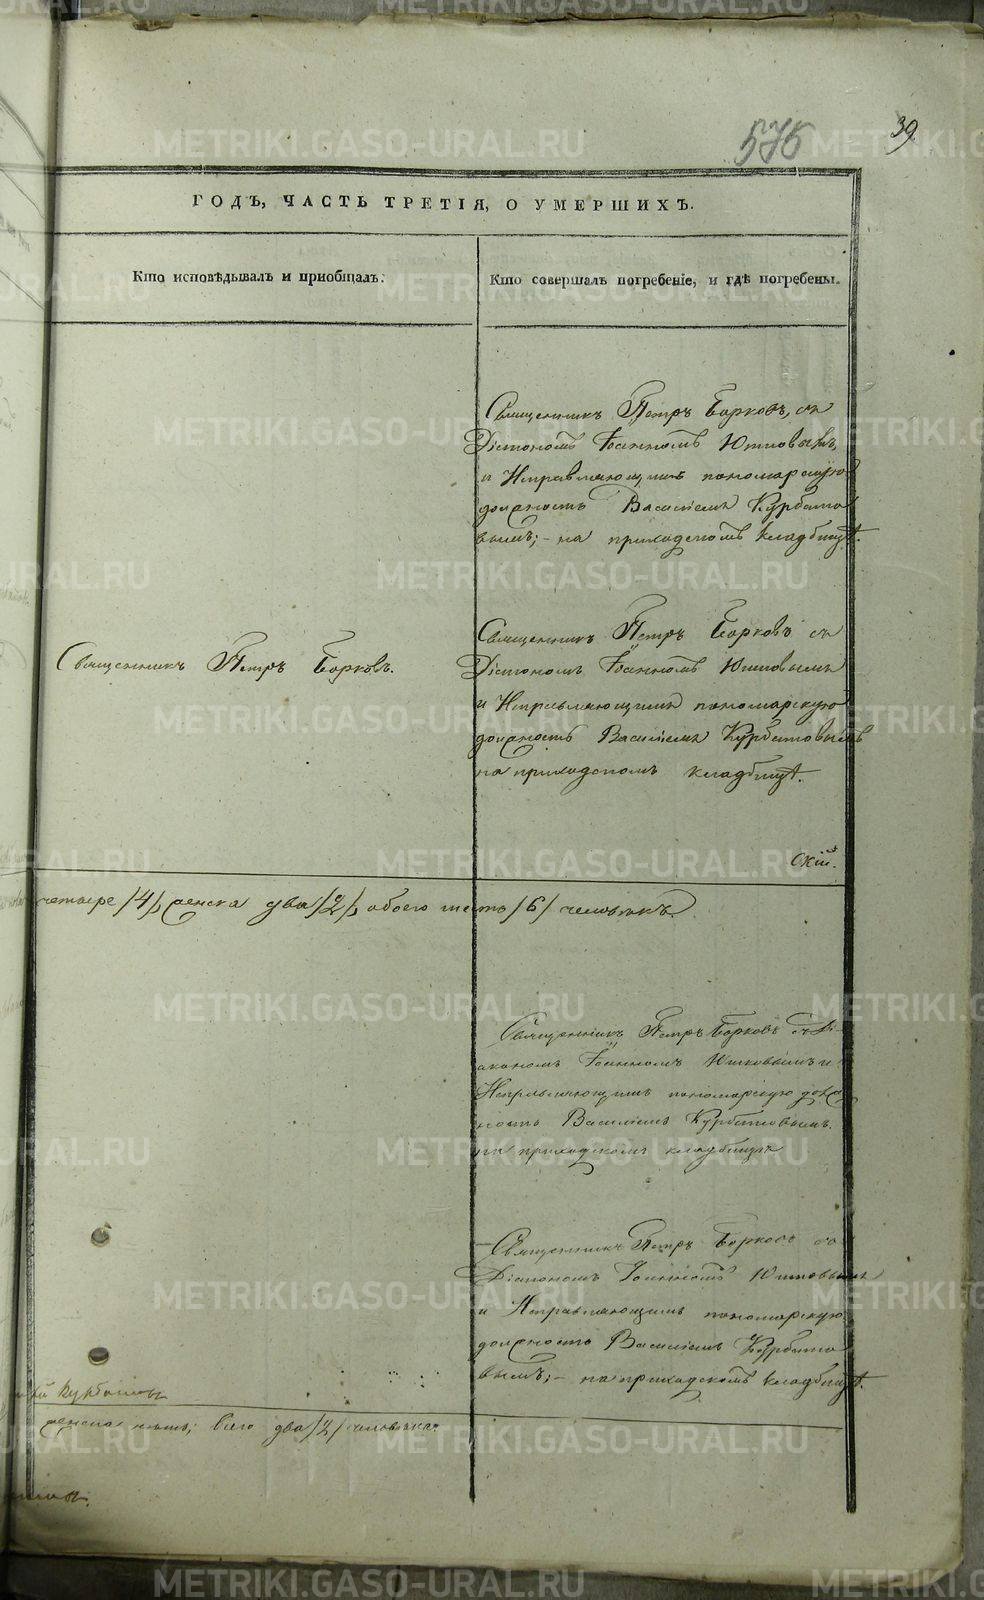 575
39
ГОДЪ, ЧАСТЬ ТРЕТІЯ, О УМЕРШИХЪ.
Кто исповѣдывалъ и приобщалъ.
Кто совершалъ погребеніе, и гдѣ погребены.
Священникъ Петръ Борковъ, съ
Діакономъ Іоанномъ Юшковымъ,
и Исправляющимъ пономарскую
должность Василіемъ Курбато
вымъ; - на приходскомъ кладбищѣ.
Священникъ Петръ Борковъ.
Священникъ Петръ Борковъ съ
Діакономъ Іоанномъ Юшковымъ
и Исправляющимъ пономарскую
должность Василіемъ Курбатовымъ
на приходскомъ кладбищѣ.
скій.
четыре /4/, женска два /2/, обоего шесть /6/ человѣкъ.
Священникъ Петръ Борковъ съ Ді-
акономъ Іоанномъ Юшковымъ и
Исправляющимъ пономарскую долж
ность Василіемъ Курбатовымъ
на приходскомъ кладбищѣ
Священникъ Петръ Борковъ съ
Діакономъ Іоанномъ Юшковымъ
и Исправляющимъ пономарскую
должность Василіемъ Курбато
вымъ; - на приходскомъ кладбищѣ.
Курбатовъ
женска нѣтъ; всего два /2/ человѣка.
METRIKI.GASO-URAL.RU